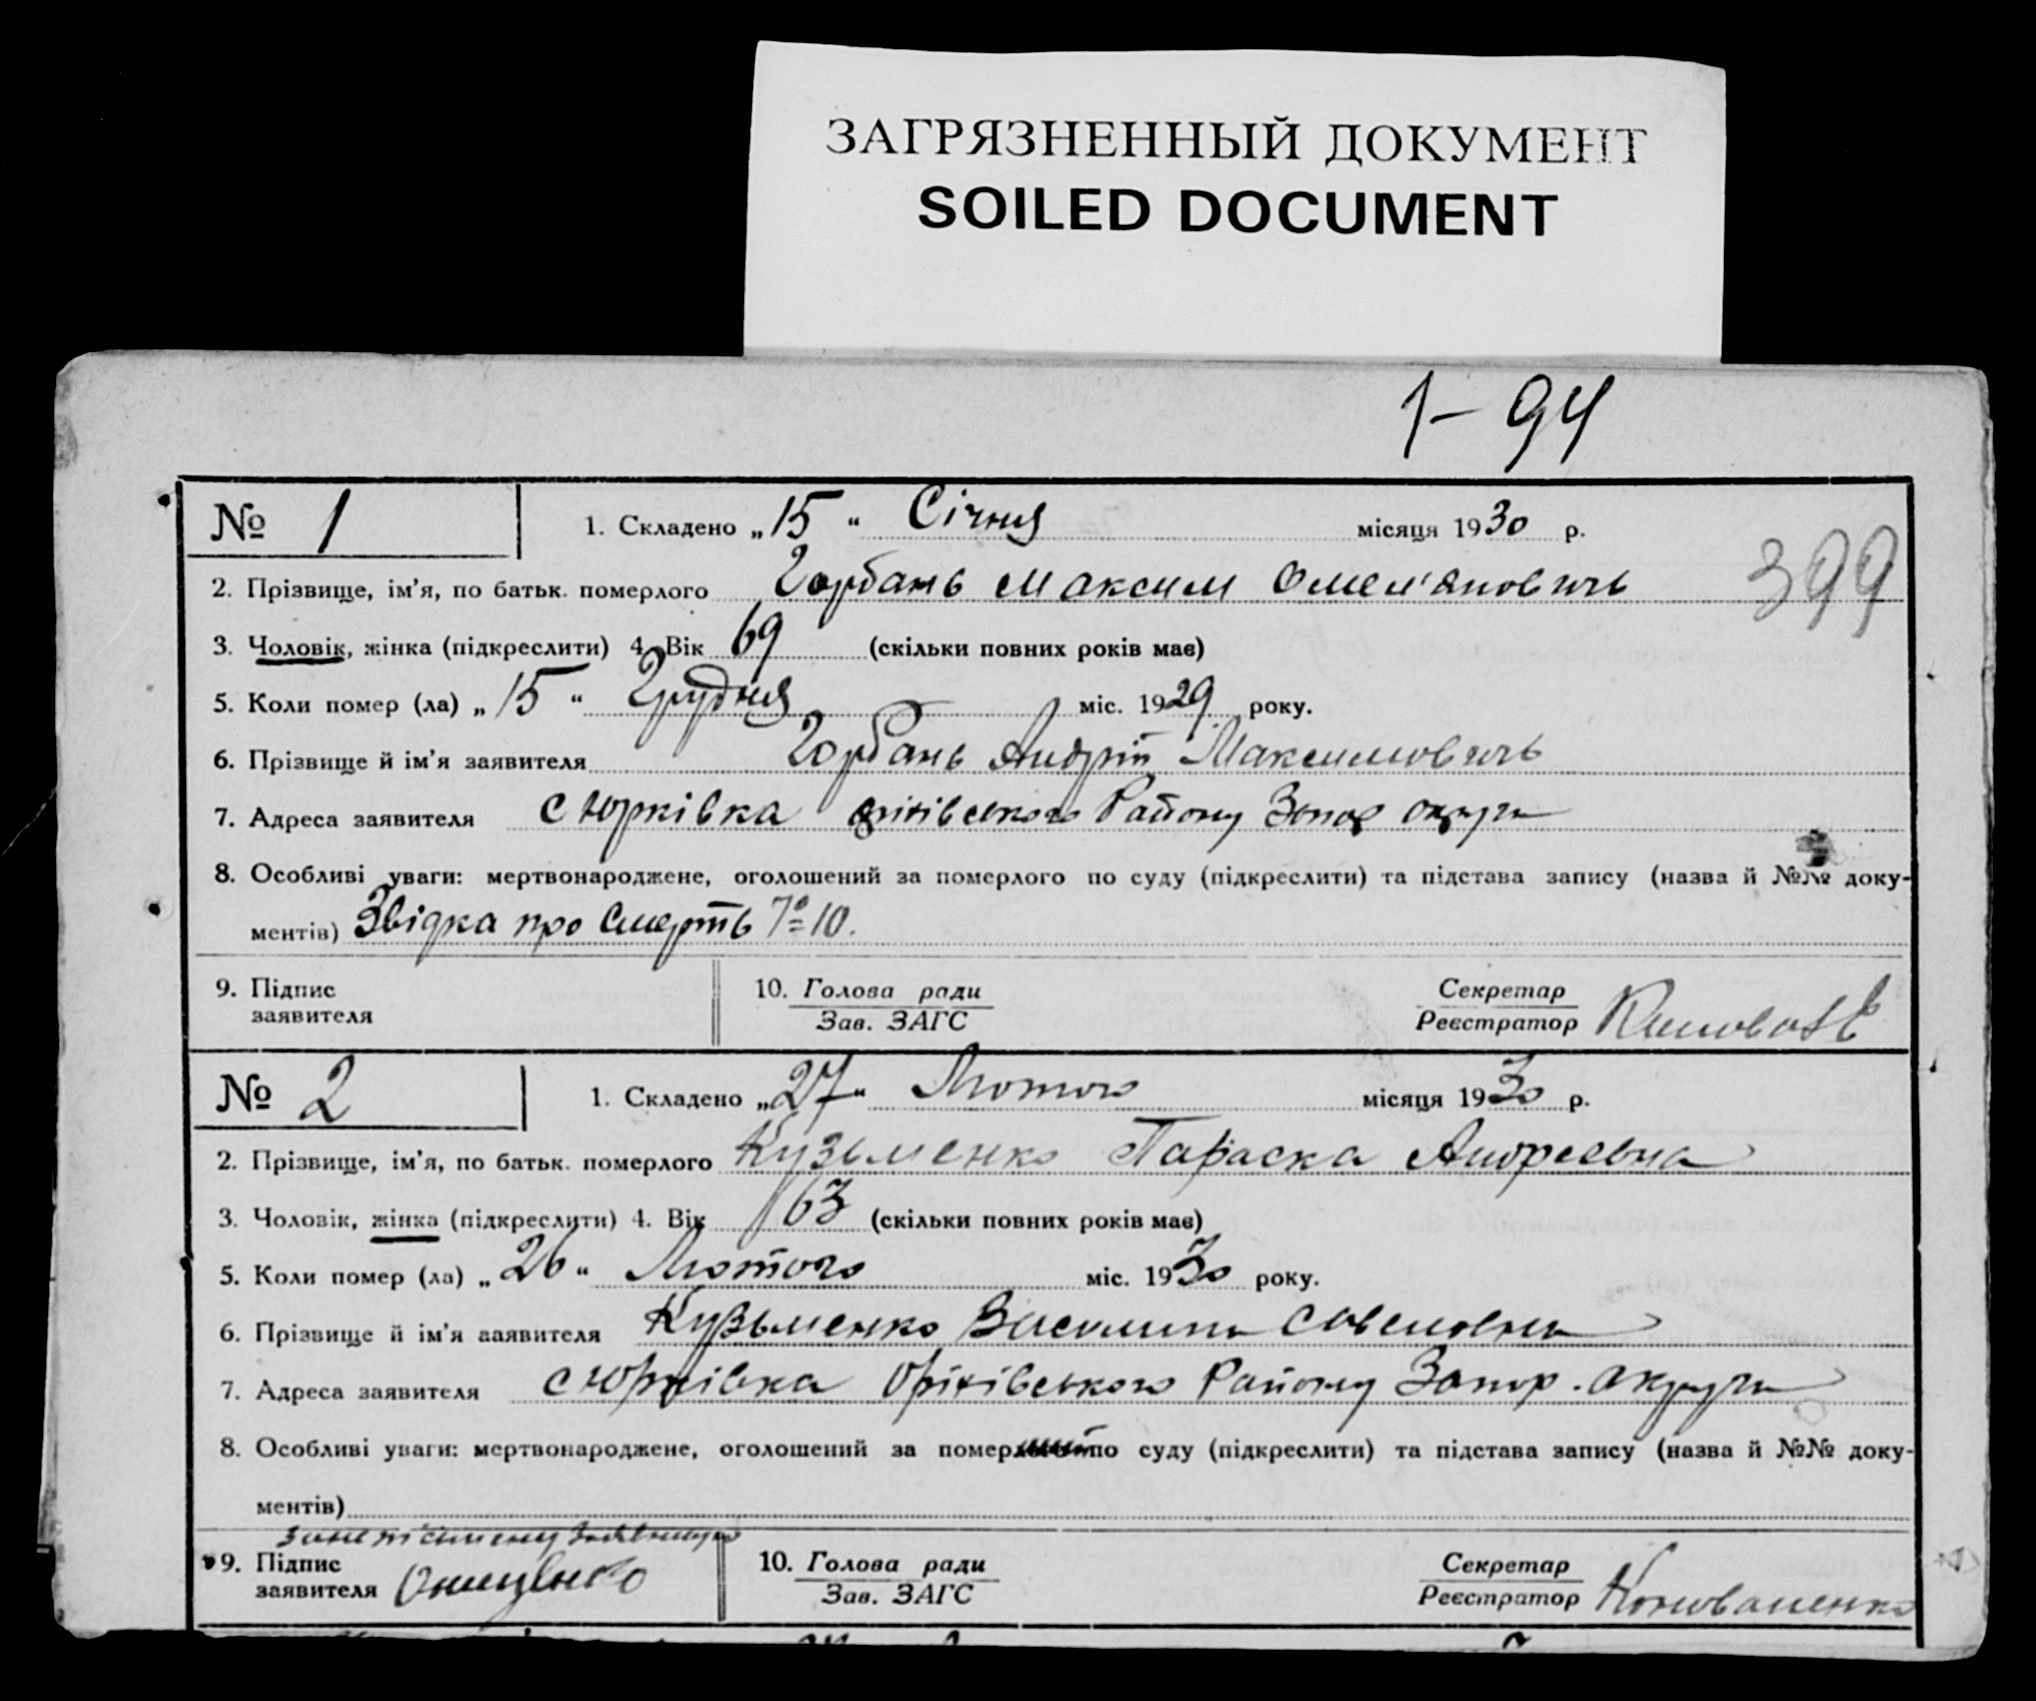 ЗАГРЯЗНЕННЫЙ ДОКУМЕНТ
SOILED DOCUMENT
1 – 94
№ 1
1. Складено „ 15 “ Січня місяця 1930 р.
399
2. Прізвище, ім'я, по батьк. померлого Горбань Максим Омел'янович
3. Чоловік, жінка (підкреслити) 4. Вік 69 (скільки повних років має)
5. Коли помер (ла) „ 15 “ Грудня міс. 1929 року.
6. Прізвище й ім'я заявителя Горбань Андрій Максимовичь
7. Адреса заявителя с Юрківка Оріхівського Району Запор округи
8. Особливі уваги: мертвонароджене, оголошений за померлого по суду (підкреслити) та підстава запису (назва й №№ доку-
ментів) Звідка про Смерть № 10.
9. Підпис заявителя
10. Голова ради
Зав. ЗАГС
Секретар
Реєстратор
№ 2
1. Складено „ 27 “ Лютого місяця 1930 р.
2. Прізвище, ім'я, по батьк. померлого Кузьменко Параска Андреевна
3. Чоловік, жінка (підкреслити) 4. Вік 63 (скільки повних років має)
5. Коли помер (ла) „ 26 “ Лютого міс. 1930 року.
6. Прізвище й ім'я заявителя Кузьменко Василина
7. Адреса заявителя с Юрківка Оріхівського Району Запор. округи
8. Особливі уваги: мертвонароджене, оголошений за померлого по суду (підкреслити) та підстава запису (назва й №№ доку-
ментів)
9. Підпис заявителя
10. Голова ради
Зав. ЗАГС
Секретар
Реєстратор Коноваленко